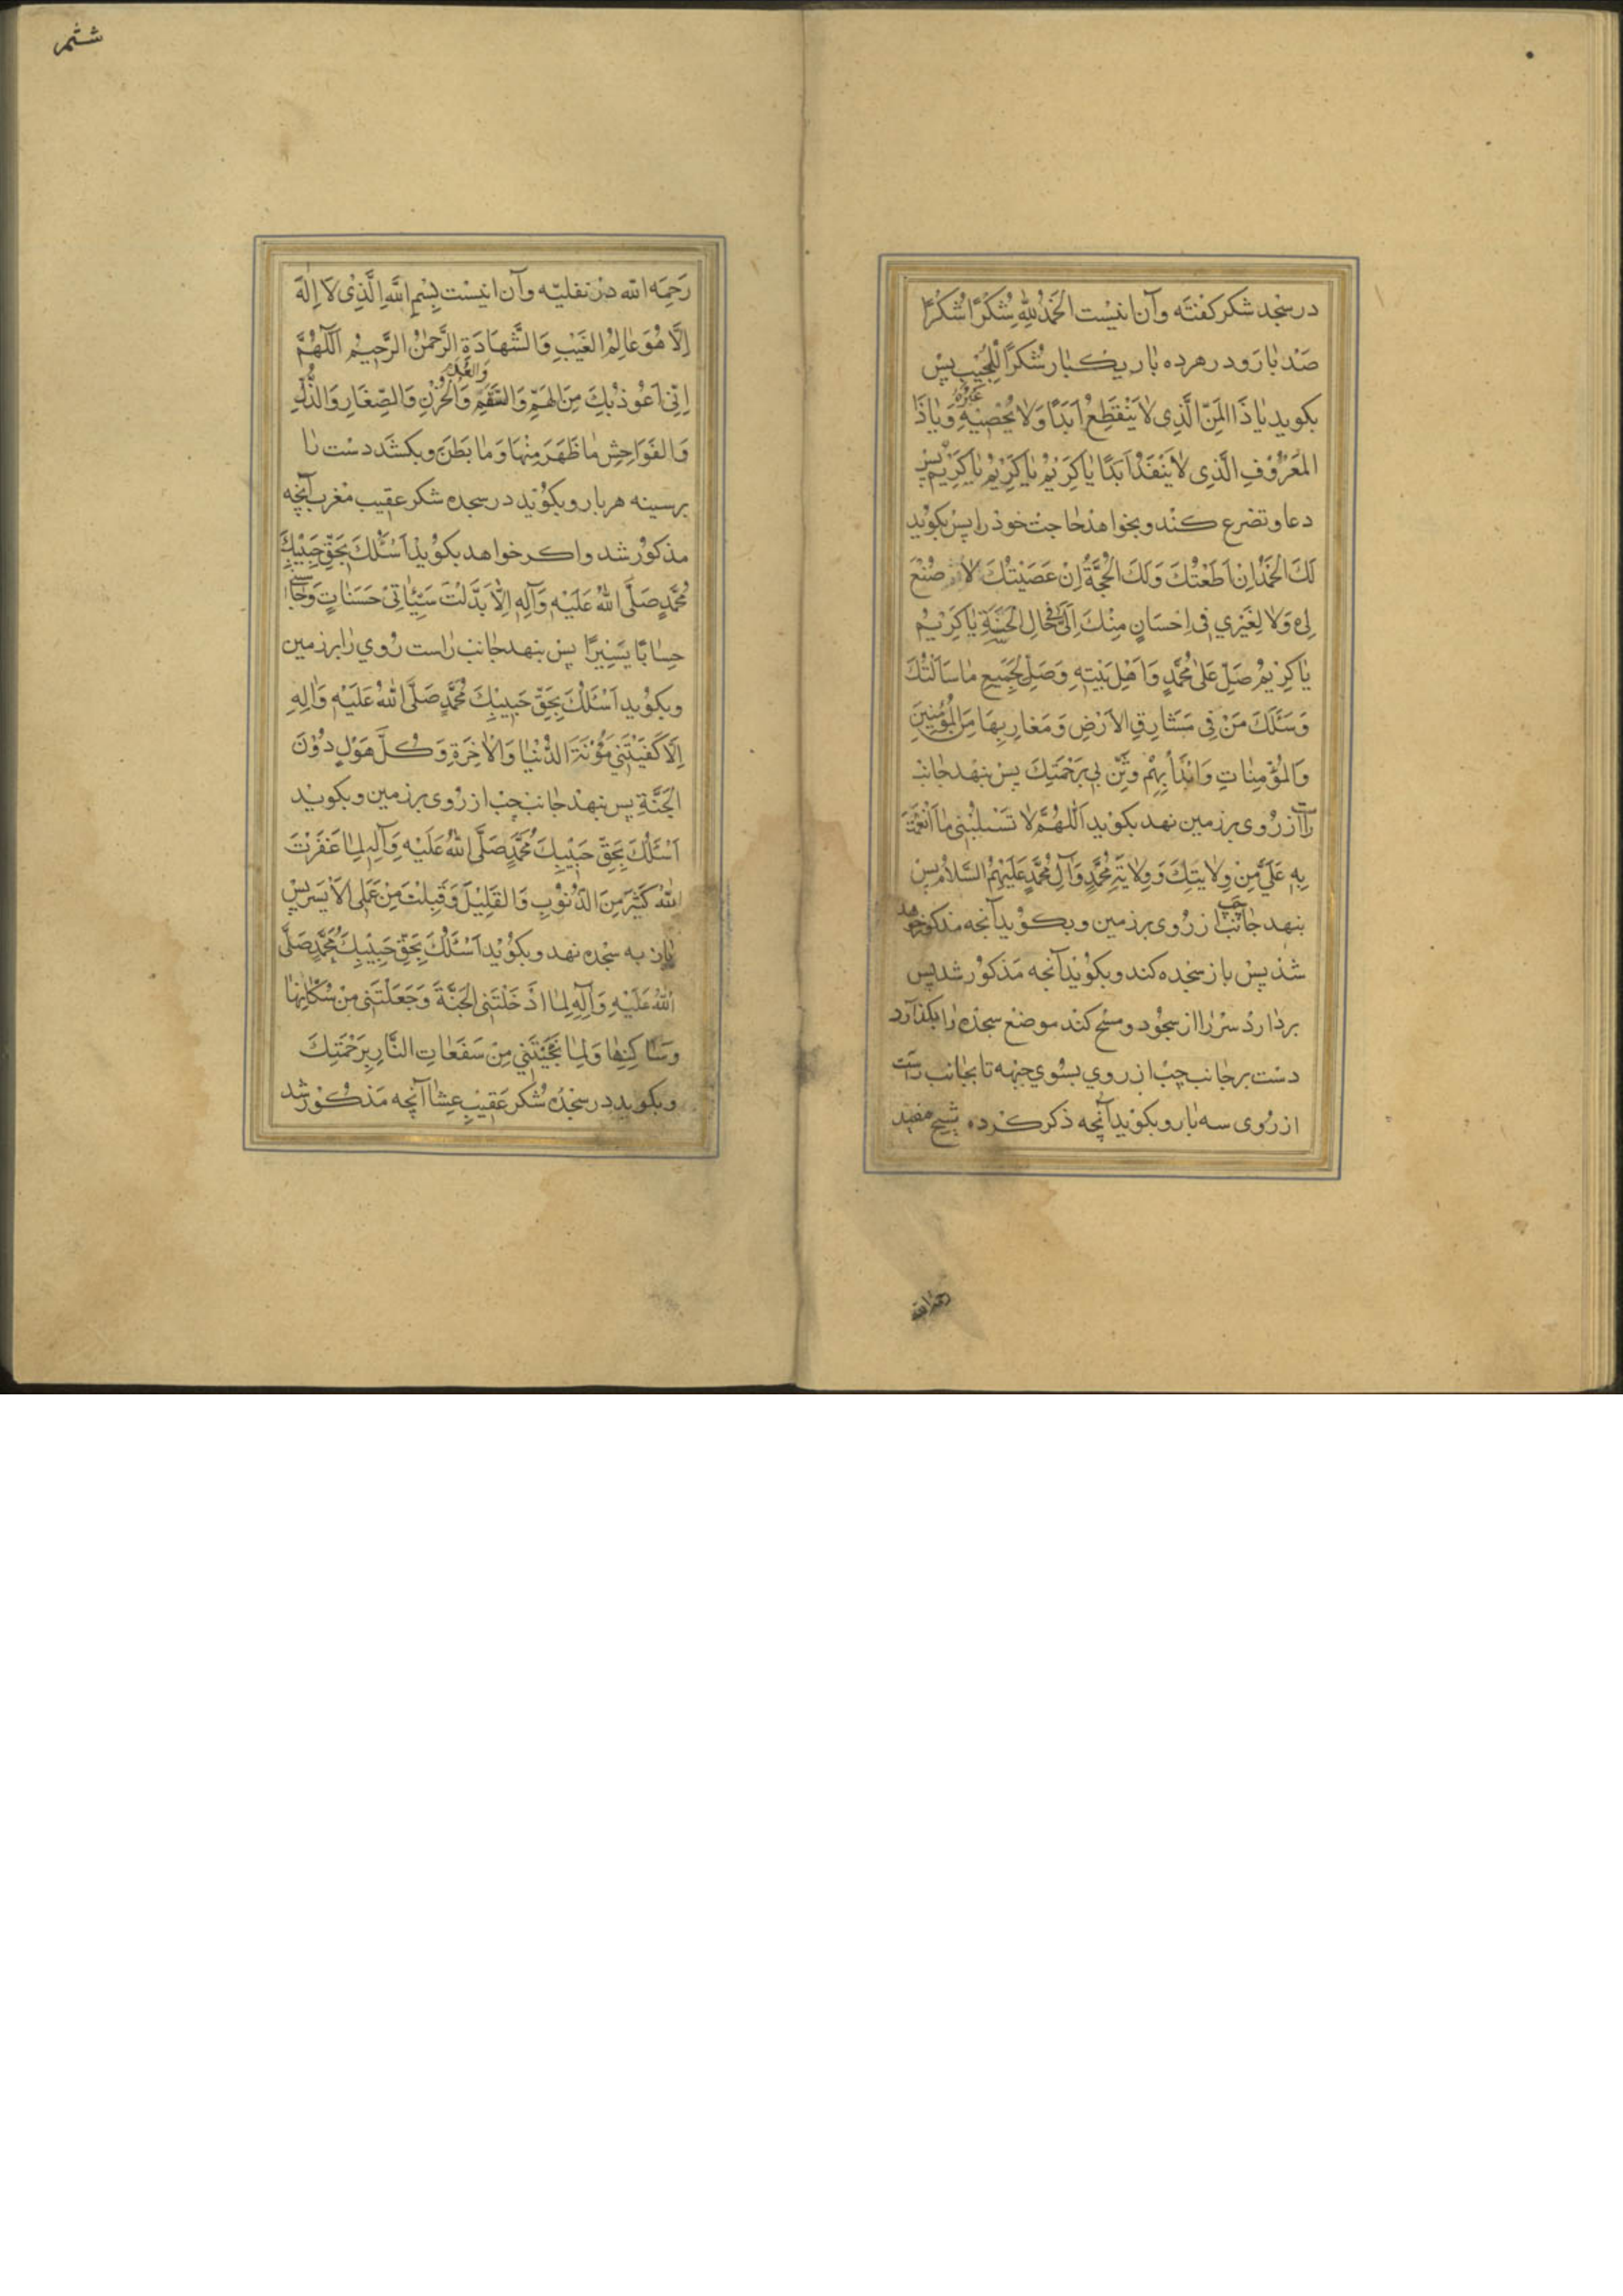 در سجده شکر کفته وآن اینست الْحَمْدُ لِلّٰهِ شُكْرًا شُكْرًا
صد بار و در هر ده بار یکبار شُكْرًا لِلْمُجِيبِ پس
بکوید يَا ذَا الْمَنِّ الَّذِي لَا يَنْقَطِعُ اَبَدًا وَلَا يُحْصِيهِ غَيْرُهُ وَيَا ذَا
الْمَعْرُوفِ الَّذِي لَا يَنْفَدُ اَبَدًا يَا كَرِيمُ يَا كَرِيمُ يَا كَرِيمُ پس
دعا و تضرع کند و بخواهد حاجت خود را پس بکوید
لَكَ الْحَمْدُ اِنْ اَطَعْتُكَ وَلَكَ الْحُجَّةُ اِنْ عَصَيْتُكَ لَا صُنْعَ
لِي وَلَا لِغَيْرِي فِي اِحْسَانٍ مِنْكَ اِلَيَّ فِي حَالِ الْحَسَنَةِ يَا كَرِيمُ
يَا كَرِيمُ صَلِّ عَلَى مُحَمَّدٍ وَاَهْلِ بَيْتِهِ وَصِلْ بِجَمِيعِ مَا سَاَلْتُكَ
وَسَئَلَكَ مَنْ فِي مَشَارِقِ الْاَرْضِ وَمَغَارِبِهَا مِنَ الْمُؤْمِنِينَ
وَالْمُؤْمِنَاتِ وَابْدَأْ بِهِمْ وَثَنِّ بِي بِرَحْمَتِكَ پس بنهد جانب
راست از روی بر زمین نهد بکوید اَللّٰهُمَّ لَا تَسْلُبْنِي مَا اَنْعَمْتَ
بِهِ عَلَيَّ مِنْ وِلَايَتِكَ وَوِلَايَةِ مُحَمَّدٍ وَآلِ مُحَمَّدٍ عَلَيْهِمُ السَّلَامُ پس
بنهد جانب چپ از روی بر زمین و بکوید آنچه مذکور خواهد
شد پس باز سجده کند و بکوید آنچه مذکور شد پس
بردارد سر را از سجود و مسح کند موضع سجده را بکذارد
دست بر جانب چپ از روي بسوي جبهه تا بجانب راست
از روی سه بار و بکوید آنچه ذکر کرده شیخ مفید
رحمه الله
ششم
رحمه الله در نفلیه وآن اینست بِسْمِ اللّٰهِ الَّذِي لَا اِلٰهَ
اِلَّا هُوَ عَالِمُ الْغَيْبِ وَالشَّهَادَةِ الرَّحْمٰنُ الرَّحِيمُ اَللّٰهُمَّ
اِنِّي اَعُوذُ بِكَ مِنَ الْهَمِّ وَالسَّقَمِ وَالْعُدْمِ وَالْحُزْنِ وَالصِّغَارِ وَالذُّلِّ
وَالْفَوَاحِشِ مَا ظَهَرَ مِنْهَا وَمَا بَطَنَ و بکشد دست را
بر سینه هر بار و بکوید در سجده شکر عقیب مغرب آنچه
مذکور شد و اکر خواهد بکوید اَسْئَلُكَ بِحَقِّ حَبِيبِكَ
مُحَمَّدٍ صَلَّى اللّٰهُ عَلَيْهِ وَآلِهِ اِلَّا بَدَّلْتَ سَيِّئَاتِي حَسَنَاتٍ وَحَاسِبْنِي
حِسَابًا يَسِيرًا پس بنهد جانب راست روي را بر زمین
و بکوید اَسْئَلُكَ بِحَقِّ حَبِيبِكَ مُحَمَّدٍ صَلَّى اللّٰهُ عَلَيْهِ وَآلِهِ
اِلَّا كَفَيْتَنِي مَؤُنَةَ الدُّنْيَا وَالْآخِرَةِ وَكُلَّ هَوْلٍ دُونَ
الْجَنَّةِ پس بنهد جانب چپ از روی بر زمین و بکوید
اَسْئَلُكَ بِحَقِّ حَبِيبِكَ مُحَمَّدٍ صَلَّى اللّٰهُ عَلَيْهِ وَآلِهِ لَمَّا غَفَرْتَ
الله كَثِيرَ مِنَ الذُّنُوبِ وَالْقَلِيلَ وَقَبِلْتَ مِنْ عَمَلِي الْاَيْسَرَ پس
باز به سجده نهد و بکوید اَسْئَلُكَ بِحَقِّ حَبِيبِكَ مُحَمَّدٍ صَلَّى
اللّٰهُ عَلَيْهِ وَآلِهِ لَمَّا اَدْخَلْتَنِي الْجَنَّةَ وَجَعَلْتَنِي مِنْ سُكَّانِهَا
وَسَاكِنِهَا وَلَمَّا نَجَّيْتَنِي مِنْ سَفَعَاتِ النَّارِ بِرَحْمَتِكَ
و بکوید در سجده شکر عقیب عشا آنچه مذکور شد